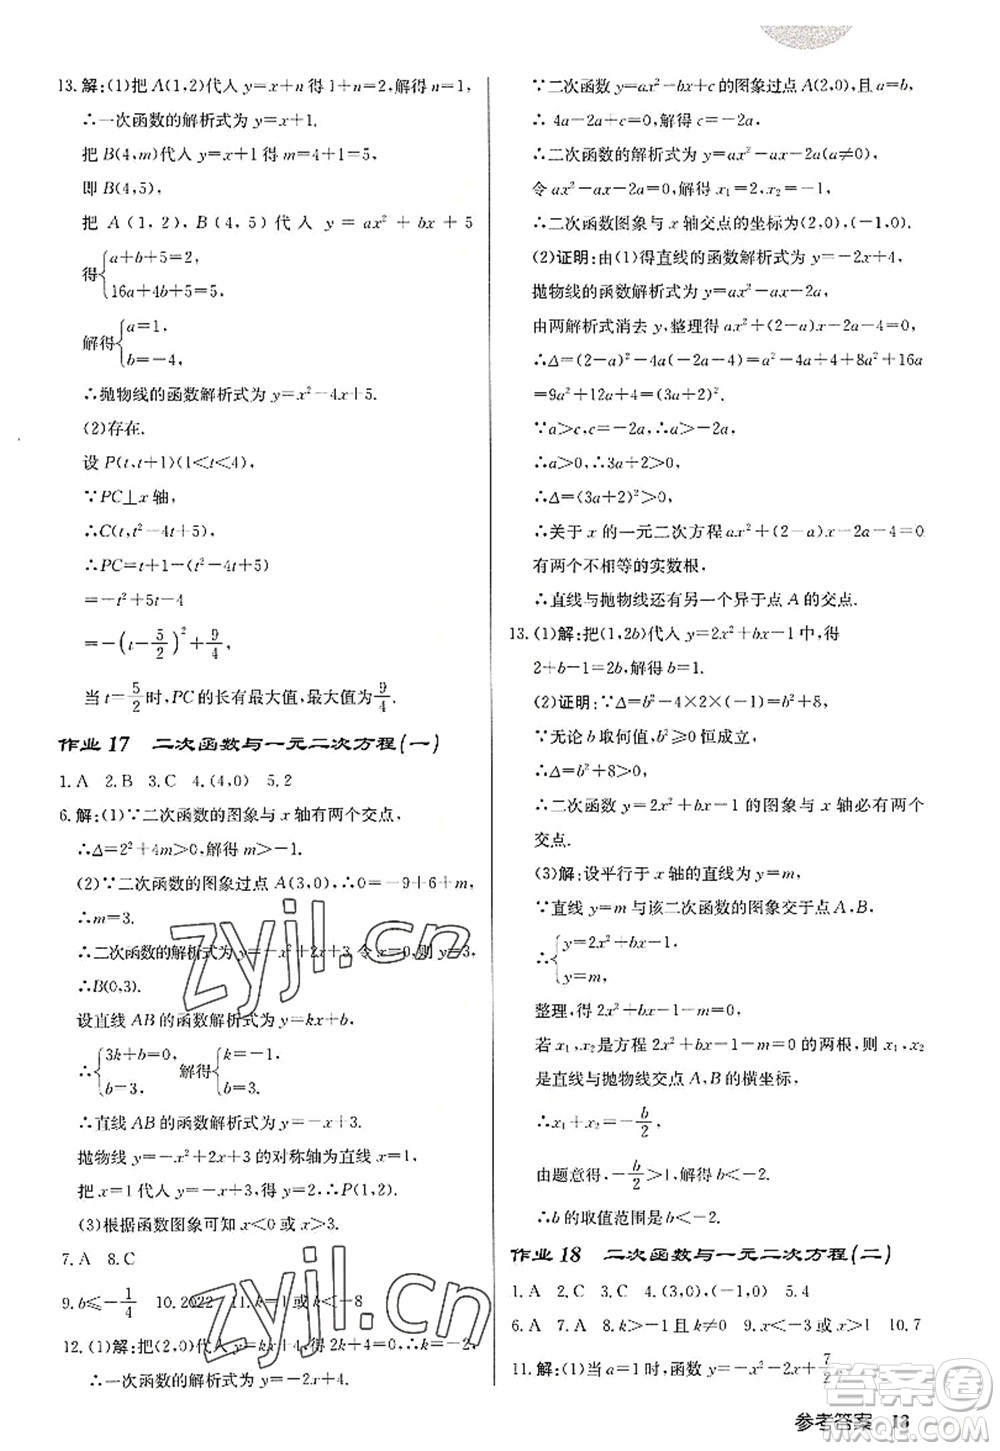 13.解:(1)把 A(1,2)代人 y=x+n 得 1+n=2,n=1,
∴一次函数的解析式为 y=x+1.
把 B(4,m)代人 y=x+1 得 m=4+1=5,
即 B(4,5).
把 A(1,2),B(4,5)代人 y=ax²+bx+5
得{a+b+5=2,
16a+4b+5=5,
解得{a=1,
b=-4,
∴抛物线的函数解析式为 y=x²-4x+5.
(2)存在.
设 P(t,t+1)(1<t<4),
∵PC⊥x 轴,
∴C(t,t²-4t+5),
∴PC=t+1-(t²-4t+5)
=-t²+5t-4
=-(t-5/2)²+9/4,
当 t=5/2时,PC 的长有最大值,最大值为9/4.
作业 17 二次函数与一元二次方程(一)
1.A 2.B 3.C 4.(4,0) 5.2
6.解:(1)∵二次函数的图象与 x 轴有两个交点,
∴Δ=2²+4m>0,解得 m>-1.
(2)∵二次函数的图象过点 A(3,0),∴0=-9+6+m,
∴m=3.
∴二次函数的解析式为 y=-x²+2x+3.令 x=0,则 y=3,
∴B(0,3).
设直线 AB 的函数解析式为 y=kx+b,
∴{3k+b=0,
b=3,
解得{k=-1,
b=3,
∴直线 AB 的函数解析式为 y=-x+3.
抛物线 y=-x²+2x+3 的对称轴为直线 x=1,
把 x=1 代人 y=-x+3,得 y=2,∴P(1,2).
(3)根据函数图象可知 x<0 或 x>3.
7.A 8.C
9.b≤-1/4 10.2022 11.k=1 或 k≤-8
12.(1)解:把(2,0)代人 y=kx+4,得 2k+4=0,k=-2,
∴一次函数的解析式为 y=-2x+4,
∵二次函数 y=ax²-bx+c 的图象过点 A(2,0),且 a=b,
∴ 4a-2a+c=0,解得 c=-2a,
∴二次函数的解析式为 y=ax²-ax-2a(a≠0),
令 ax²-ax-2a=0,解得 x₁=2,x₂=-1,
∴二次函数图象与 x 轴交点的坐标为(2,0),(-1,0).
(2)证明:由(1)得直线的函数解析式为 y=-2x+4,
抛物线的函数解析式为 y=ax²-ax-2a,
由两解析式消去 y,整理得 ax²+(2-a)x-2a-4=0,
∴Δ=(2-a)²-4a(-2a-4)=a²-4a+4+8a²+16a
=9a²+12a+4=(3a+2)².
∵a>c,c=-2a,∴a>-2a,
∴a>0,∴3a+2>0,
∴Δ=(3a+2)²>0,
∴关于 x 的一元二次方程 ax²+(2-a)x-2a-4=0
有两个不相等的实数根,
∴直线与抛物线还有另一个异于点 A 的交点.
13.(1)解:把(1,2b)代人 y=2x²+bx-1 中,得
2+b-1=2b,解得 b=1.
(2)证明:∵Δ=b²-4×2×(-1)=b²+8,
∵无论 b 取何值,b²≥0 恒成立,
∴Δ=b²+8>0,
∴二次函数 y=2x²+bx-1 的图象与 x 轴必有两个
交点.
(3)解:设平行于 x 轴的直线的解析式为 y=m,
∵直线 y=m 与该二次函数的图象交于点 A,B,
∴{y=2x²+bx-1,
y=m,
整理,得 2x²+bx-1-m=0.
若 x₁,x₂是方程 2x²+bx-1-m=0 的两根,则 x₁,x₂
是直线与抛物线交点 A,B 的横坐标,
∴x₁+x₂=-b/2,
由题意得,-b/2>1,
∴b 的取值范围是 b<-2.
作业 18 二次函数与一元二次方程(二)
1.A 2.C 3.C 4.(3,0) 5.4
6.A 7.A 8.k>-1 且 k≠0 9.x<-1 或 x>4 10.7
11.解:(1)当 a=1 时,函数 y=-x²-2x+7/2,
参考答案 13
zyjl.cn
zyjl.cn
答案圈